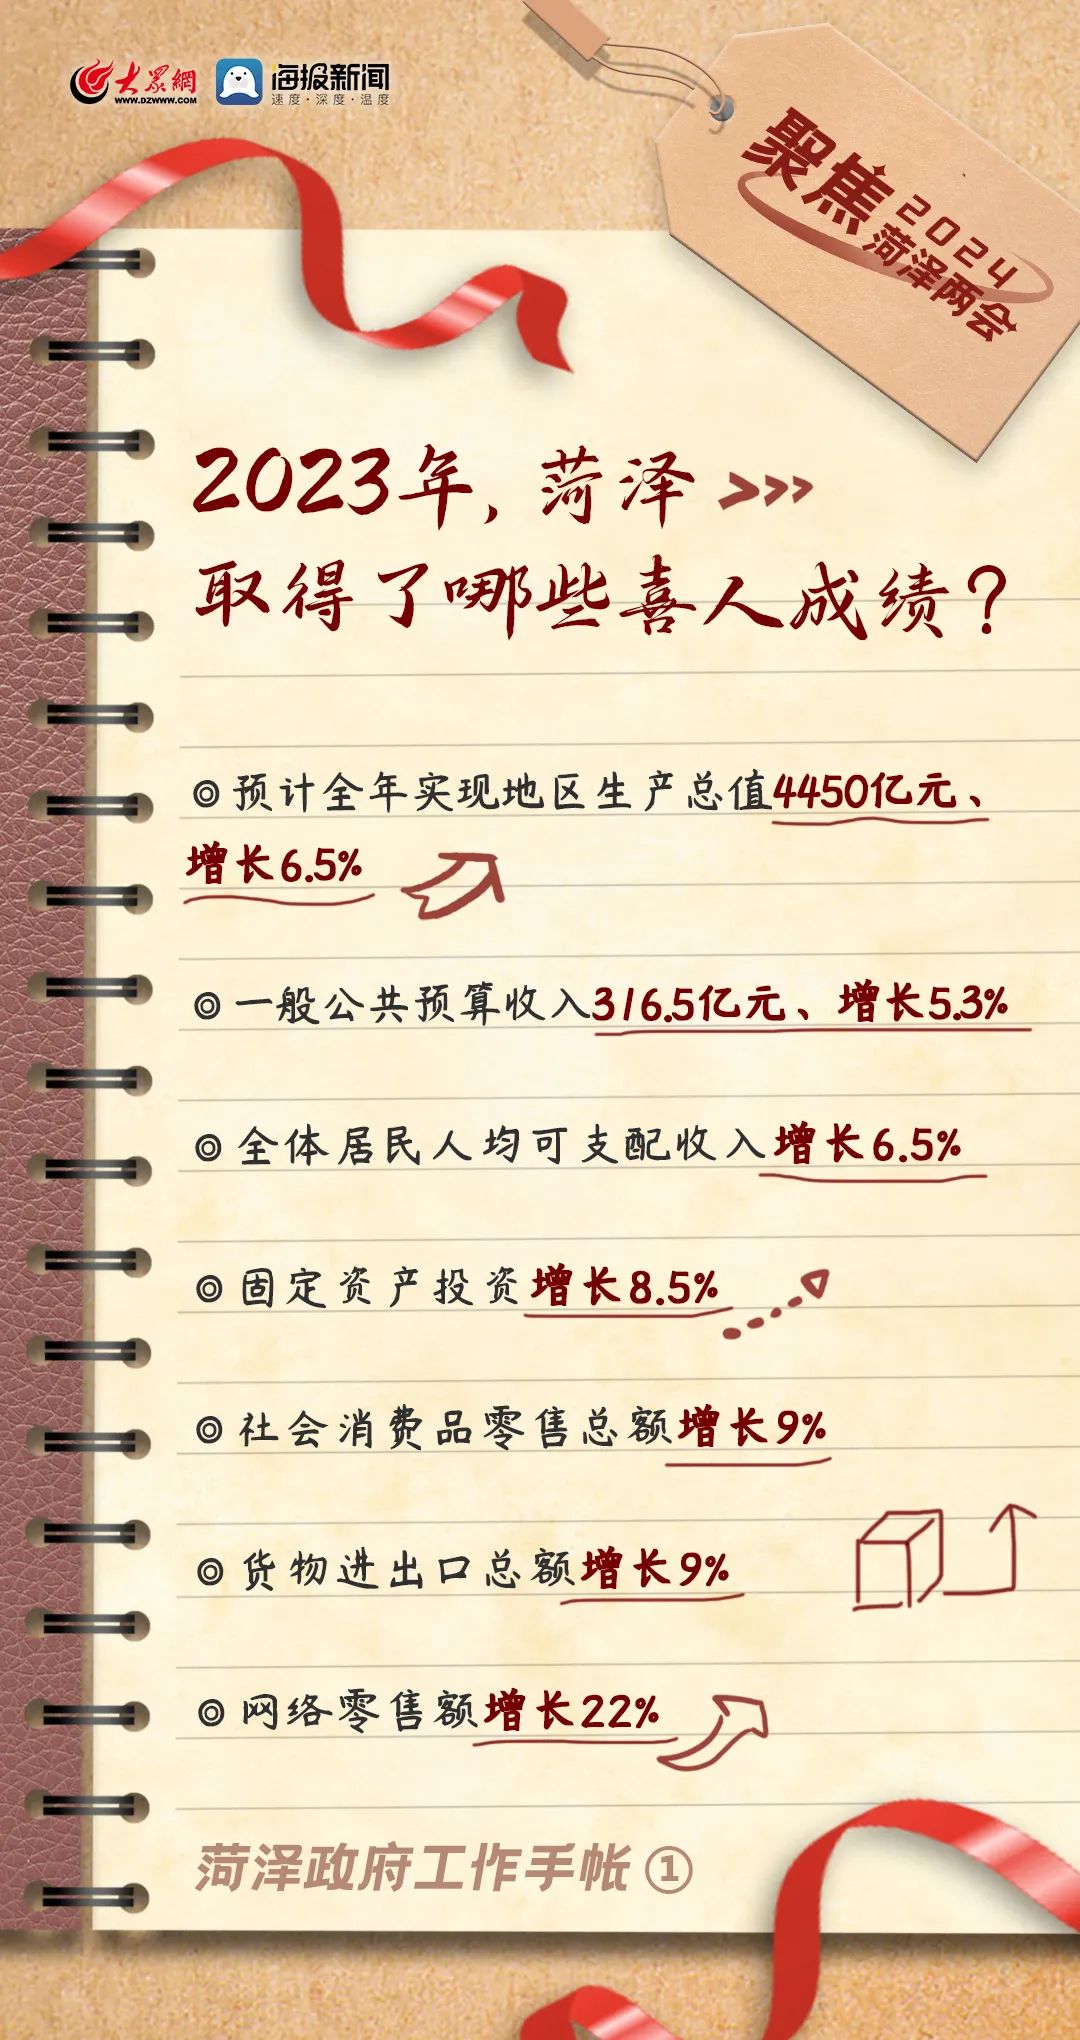 大众網
WWW.DZWWW.COM
海报新闻
速度·深度·温度
聚焦
2024
菏泽两会
2023年,菏泽>>>
取得了哪些喜人成绩?
◎预计全年实现地区生产总值4450亿元、
增长6.5%
◎一般公共预算收入316.5亿元、增长5.3%
◎全体居民人均可支配收入增长6.5%
◎固定资产投资增长8.5%
◎社会消费品零售总额增长9%
◎货物进出口总额增长9%
◎网络零售额增长22%
菏泽政府工作手帐①